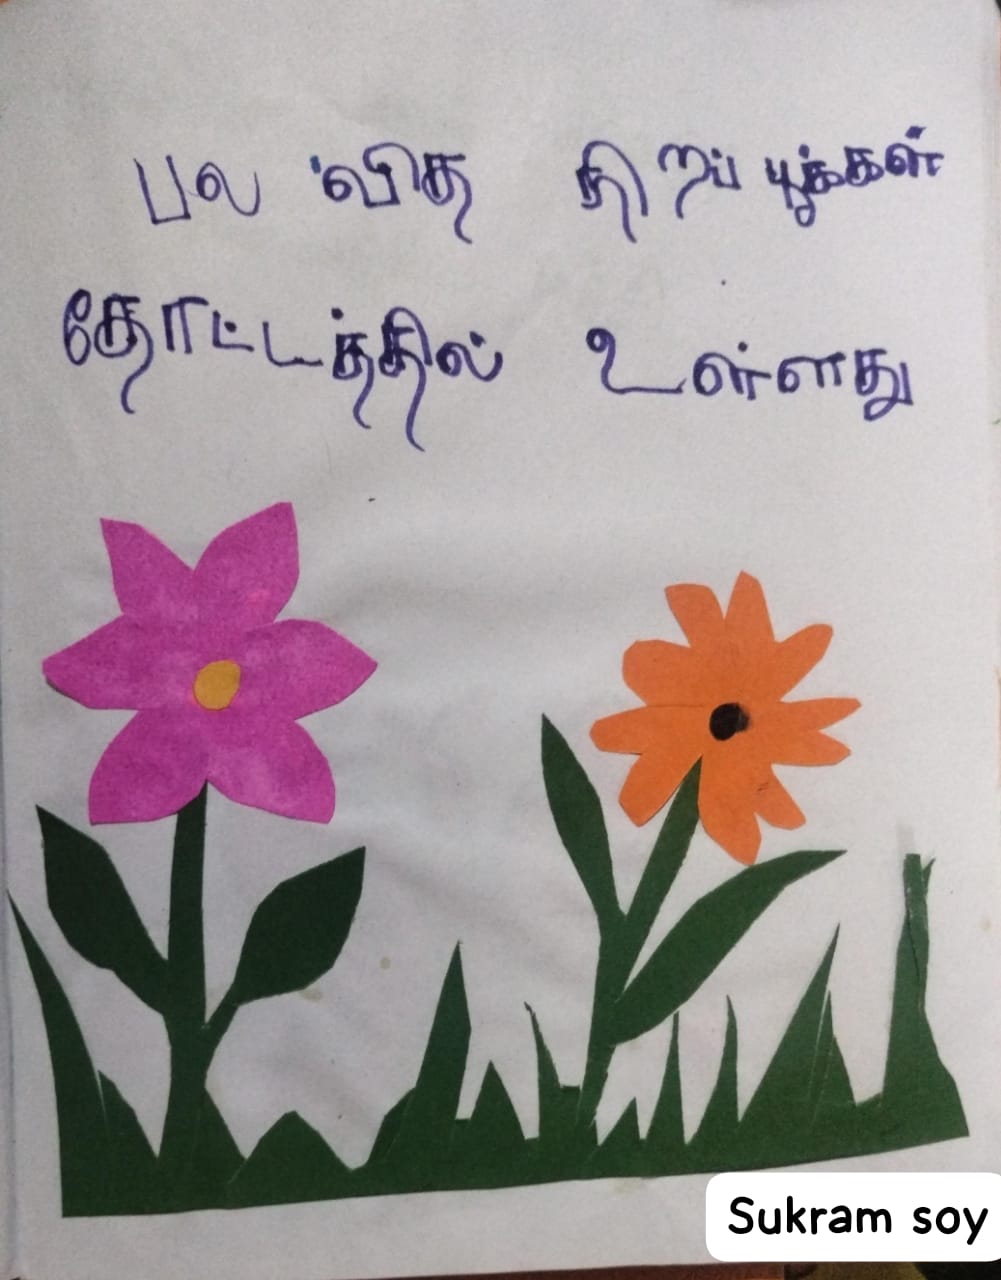 பல வித நிறப் பூக்கள்
தோட்டத்தில் உள்ளது
Sukram soy